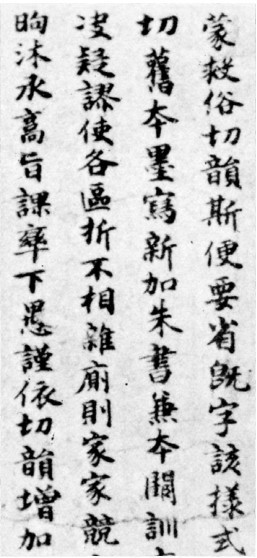 蒙救俗切韻斯便要省既字該樣式
切舊夲墨寫新加朱書兼夲闕訓
凌疑謬使各區折不相雜廁則家家競
昫沐承高旨課率下愚謹依切韻增加